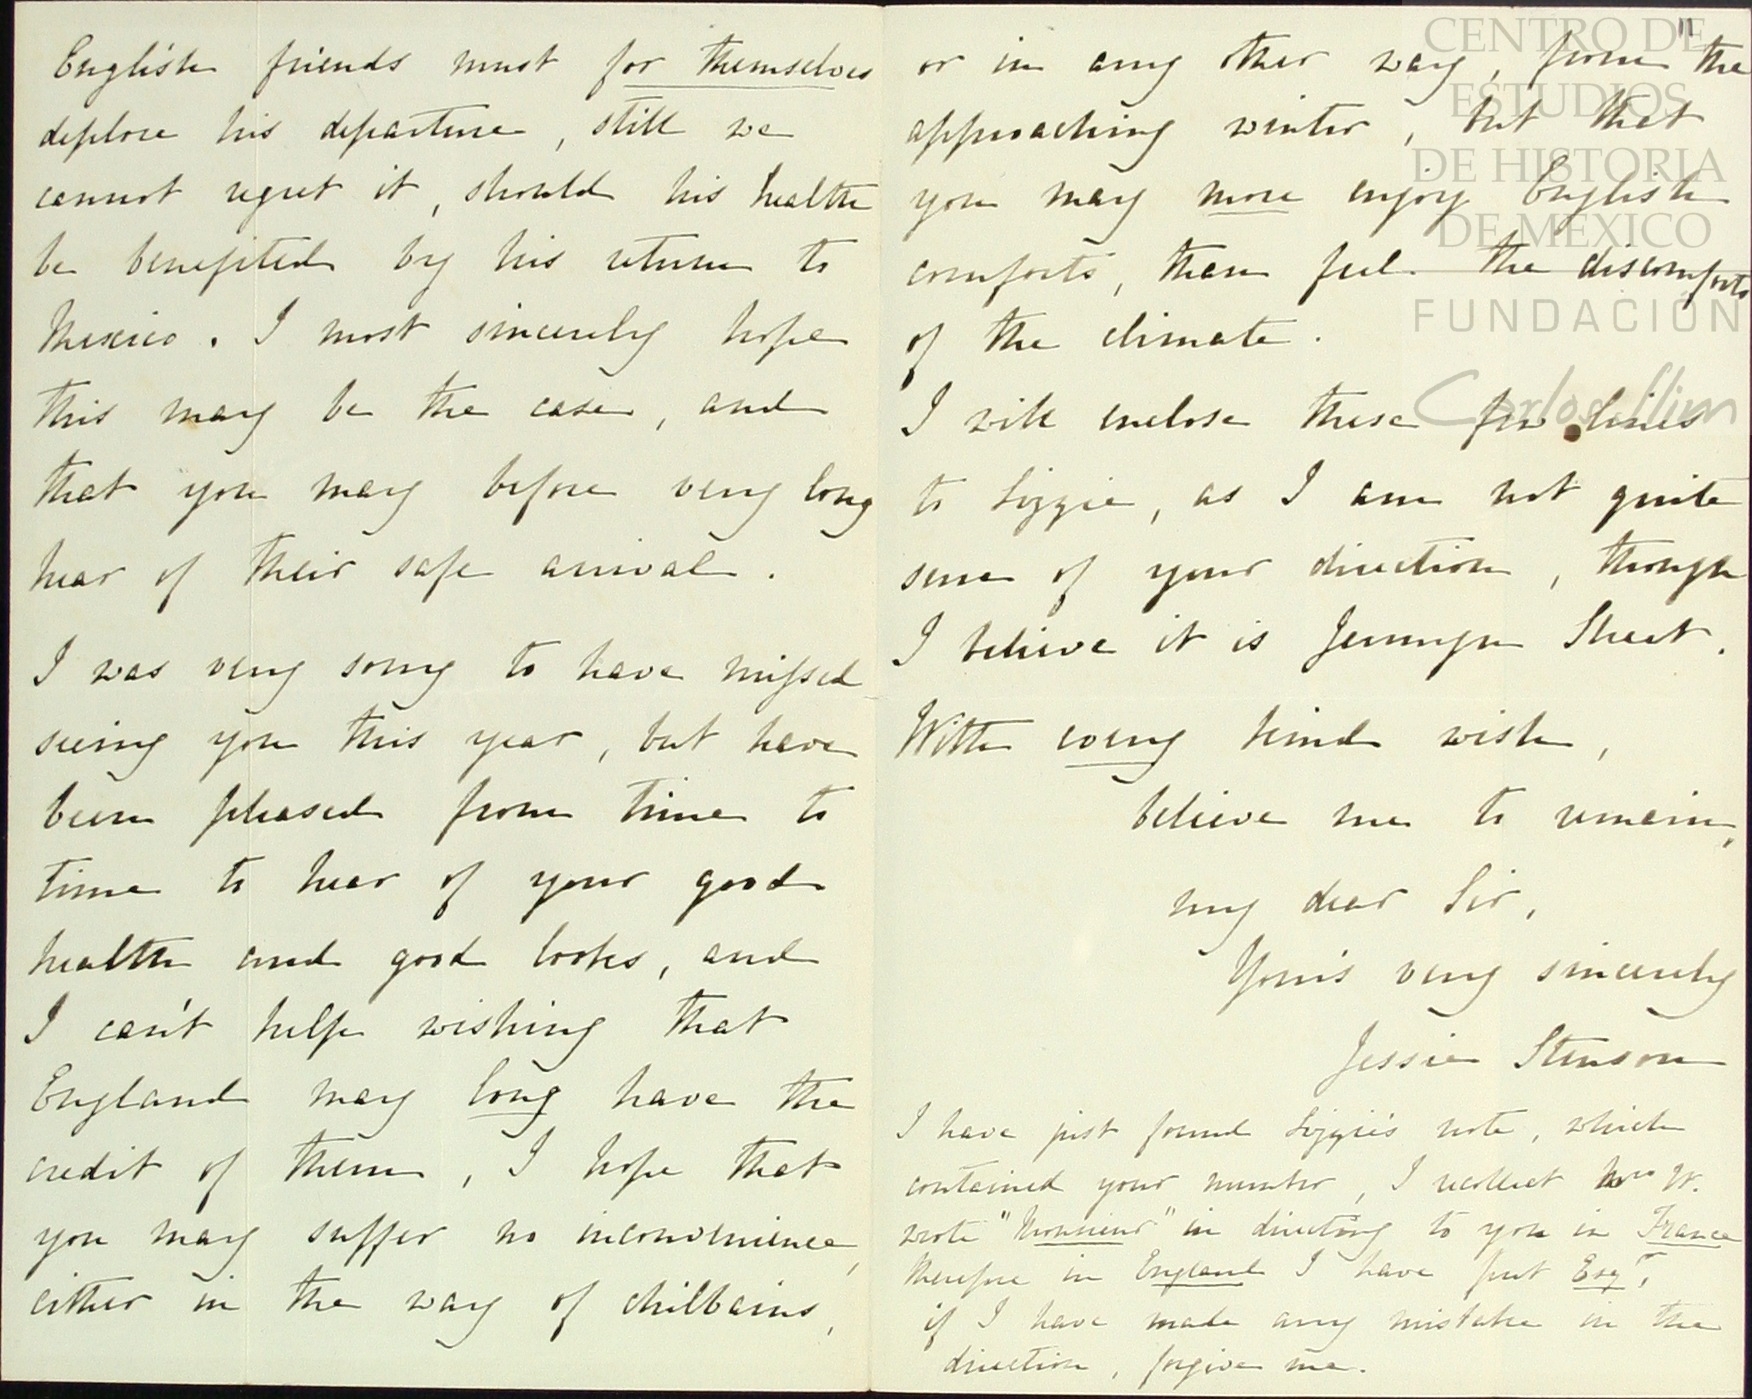 English friends must for themselves
deplore his departure, still we
cannot regret it, should his health
be benefited by his return to
Mexico. I most sincerely hope
this may be the case, and
that you may before very long
hear of their safe arrival.
I was very sorry to have missed
seeing you this year, but have
been pleased from time to
time to hear of your good
health and good looks, and
I can't help wishing that
England may long have the
credit of them, I hope that
you may suffer no inconvenience,
either in the way of chilbains,
or in any other way, from "the
approaching winter, but that
you may more enjoy English
comforts, than feel the discomforts
of the climate.
I will enclose these few lines
to Lizzie, as I am not quite
sure of your direction, though
I believe it is Jermyn Street.
With every kind wish,
believe me to remain,
my dear Sir,
Your's very sincerely
Jessie Stenson
I have just found Lizzie's note, which
contained your number, I recollect Mrs W.
wrote "Monsieur" in directing to you in France
therefore in England I have put Esqr,
if I have made any mistake in the
direction, forgive me.
CENTRO DE
ESTUDIOS
DE HISTORIA
DE MEXICO
FUNDACIÓN
Carlos Slim